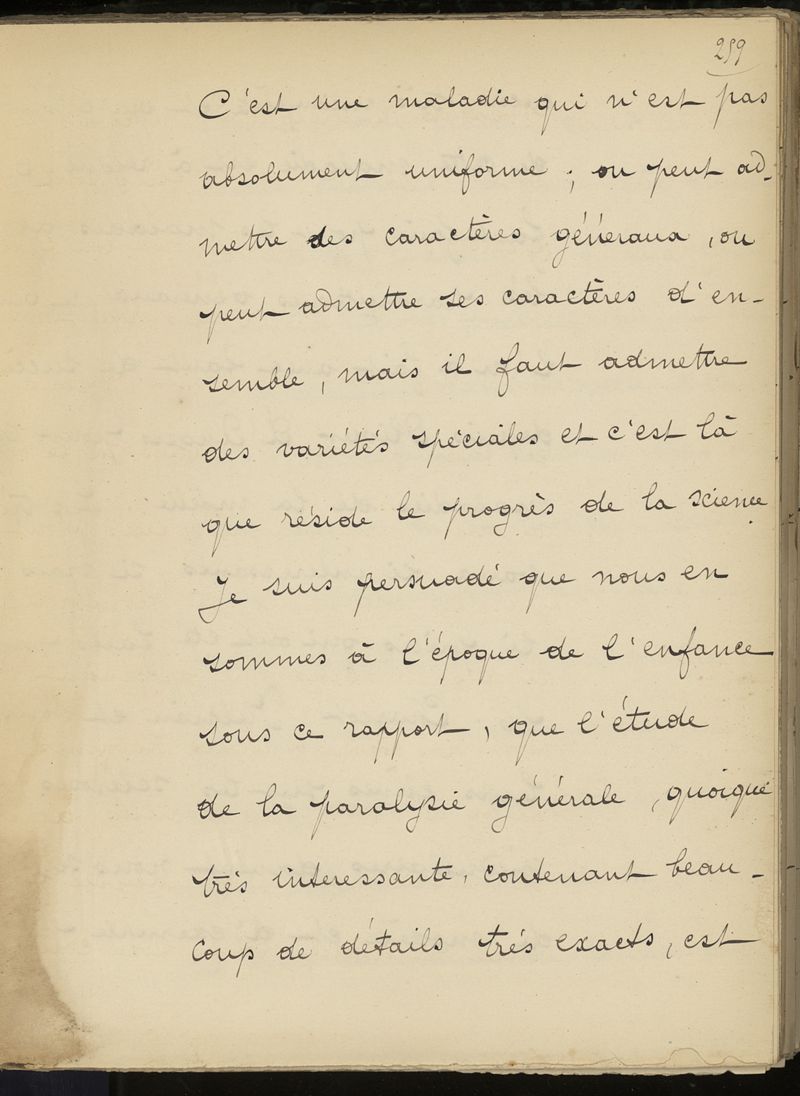 259
C'est une maladie qui n'est pas
absolument uniforme ; on peut ad-
mettre des caractères généraux, on
peut admettre ses caractères d'en-
semble, mais il faut admettre
des variétés spéciales et c'est là
que réside le progrès de la science
Je suis persuadé que nous en
sommes à l'époque de l'enfance
sous ce rapport, que l'étude
de la paralysie générale, quoique
très interessante, contenant beau-
coup de détails très exacts, est